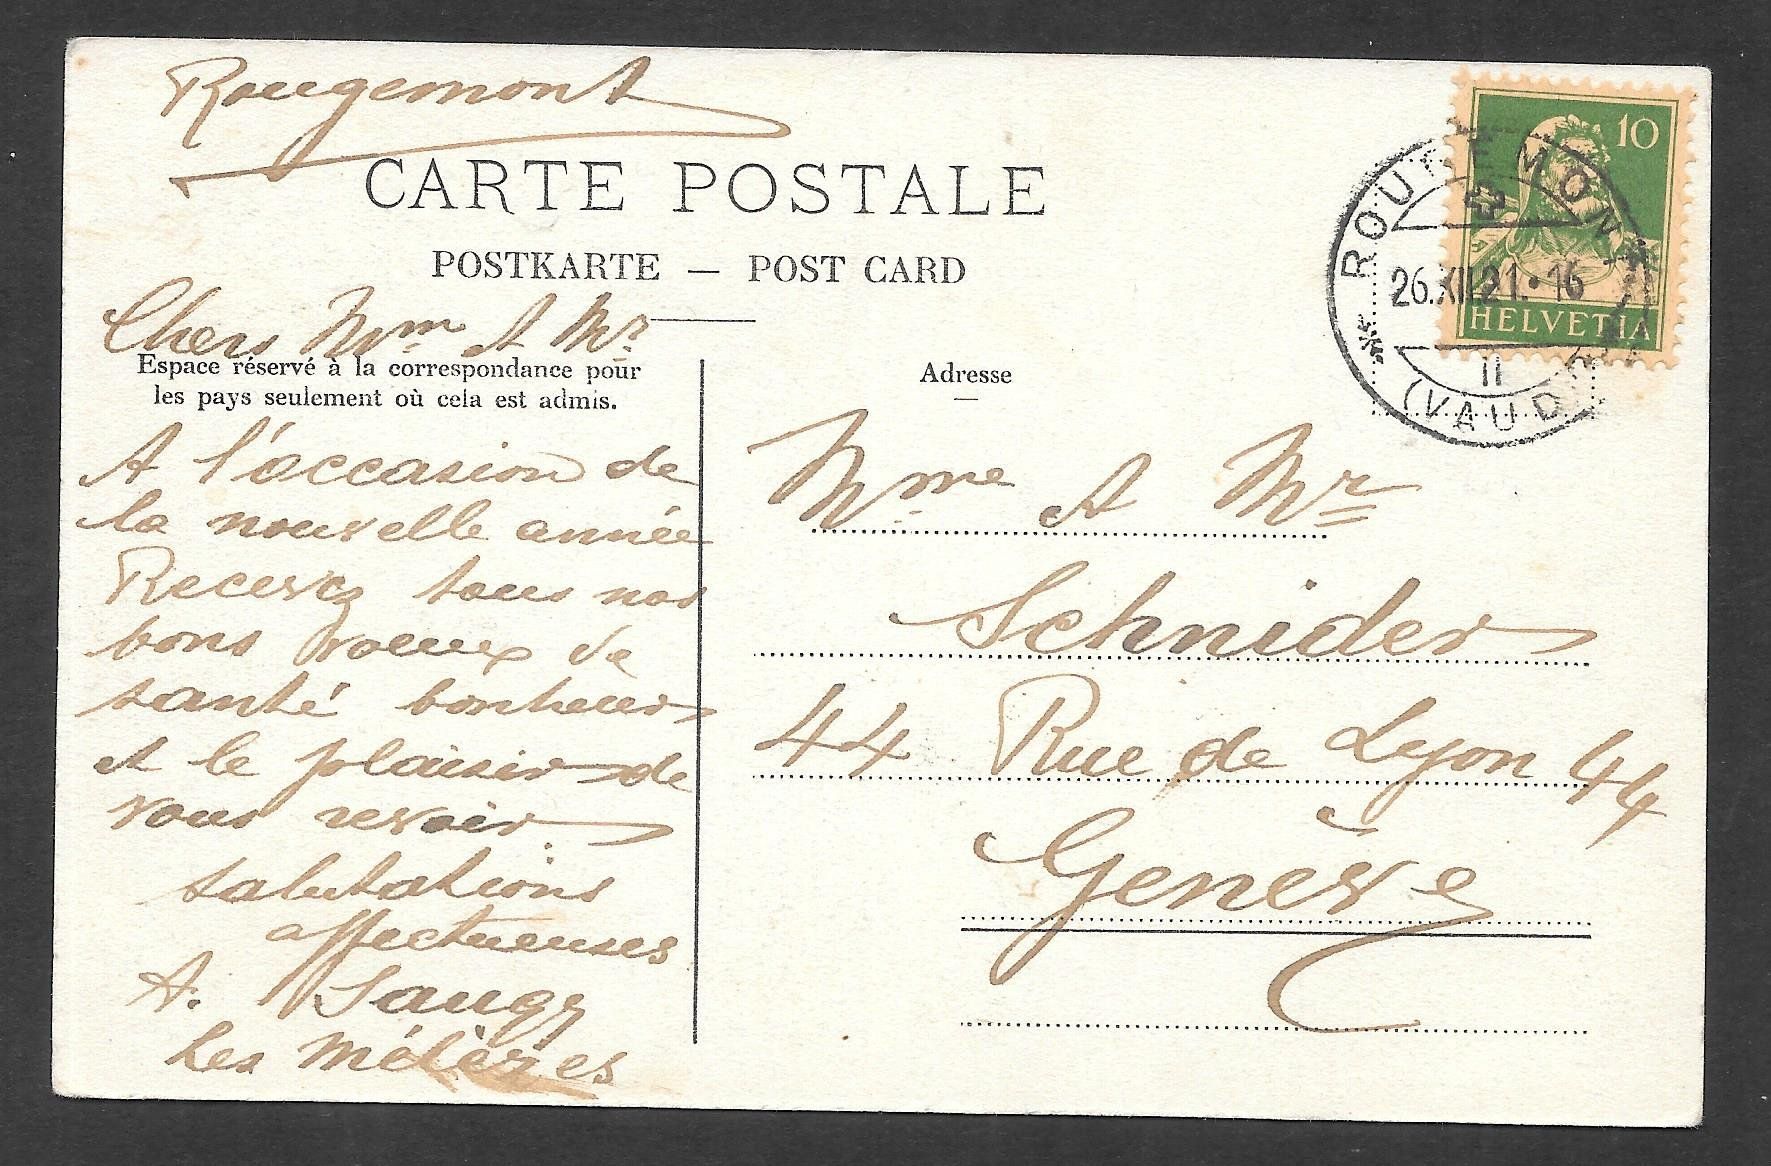 Rougemont
CARTE POSTALE
POSTKARTE — POST CARD
Chers Mme et Mr
Espace réservé à la correspondance pour
les pays seulement où cela est admis.
A l'occasion de
la nouvelle année
Recevez tous nos
bons voeux de
santé bonheur
et le plaisir de
vous revoir
salutations
affectueuses
A. Saugy
Les
Adresse
Mme et Mr
Schnider
44 Rue de Lyon 44
Genève
10
HELVETIA
ROUGEMONT
26.XII.21.16
II
(VAUD)